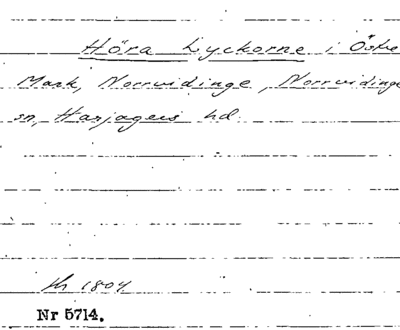 Höra Lyckorne i Östre
Mark, Norrvidinge, Norrvidinge
sn, Harjagers hd.
1804
Nr 5714.